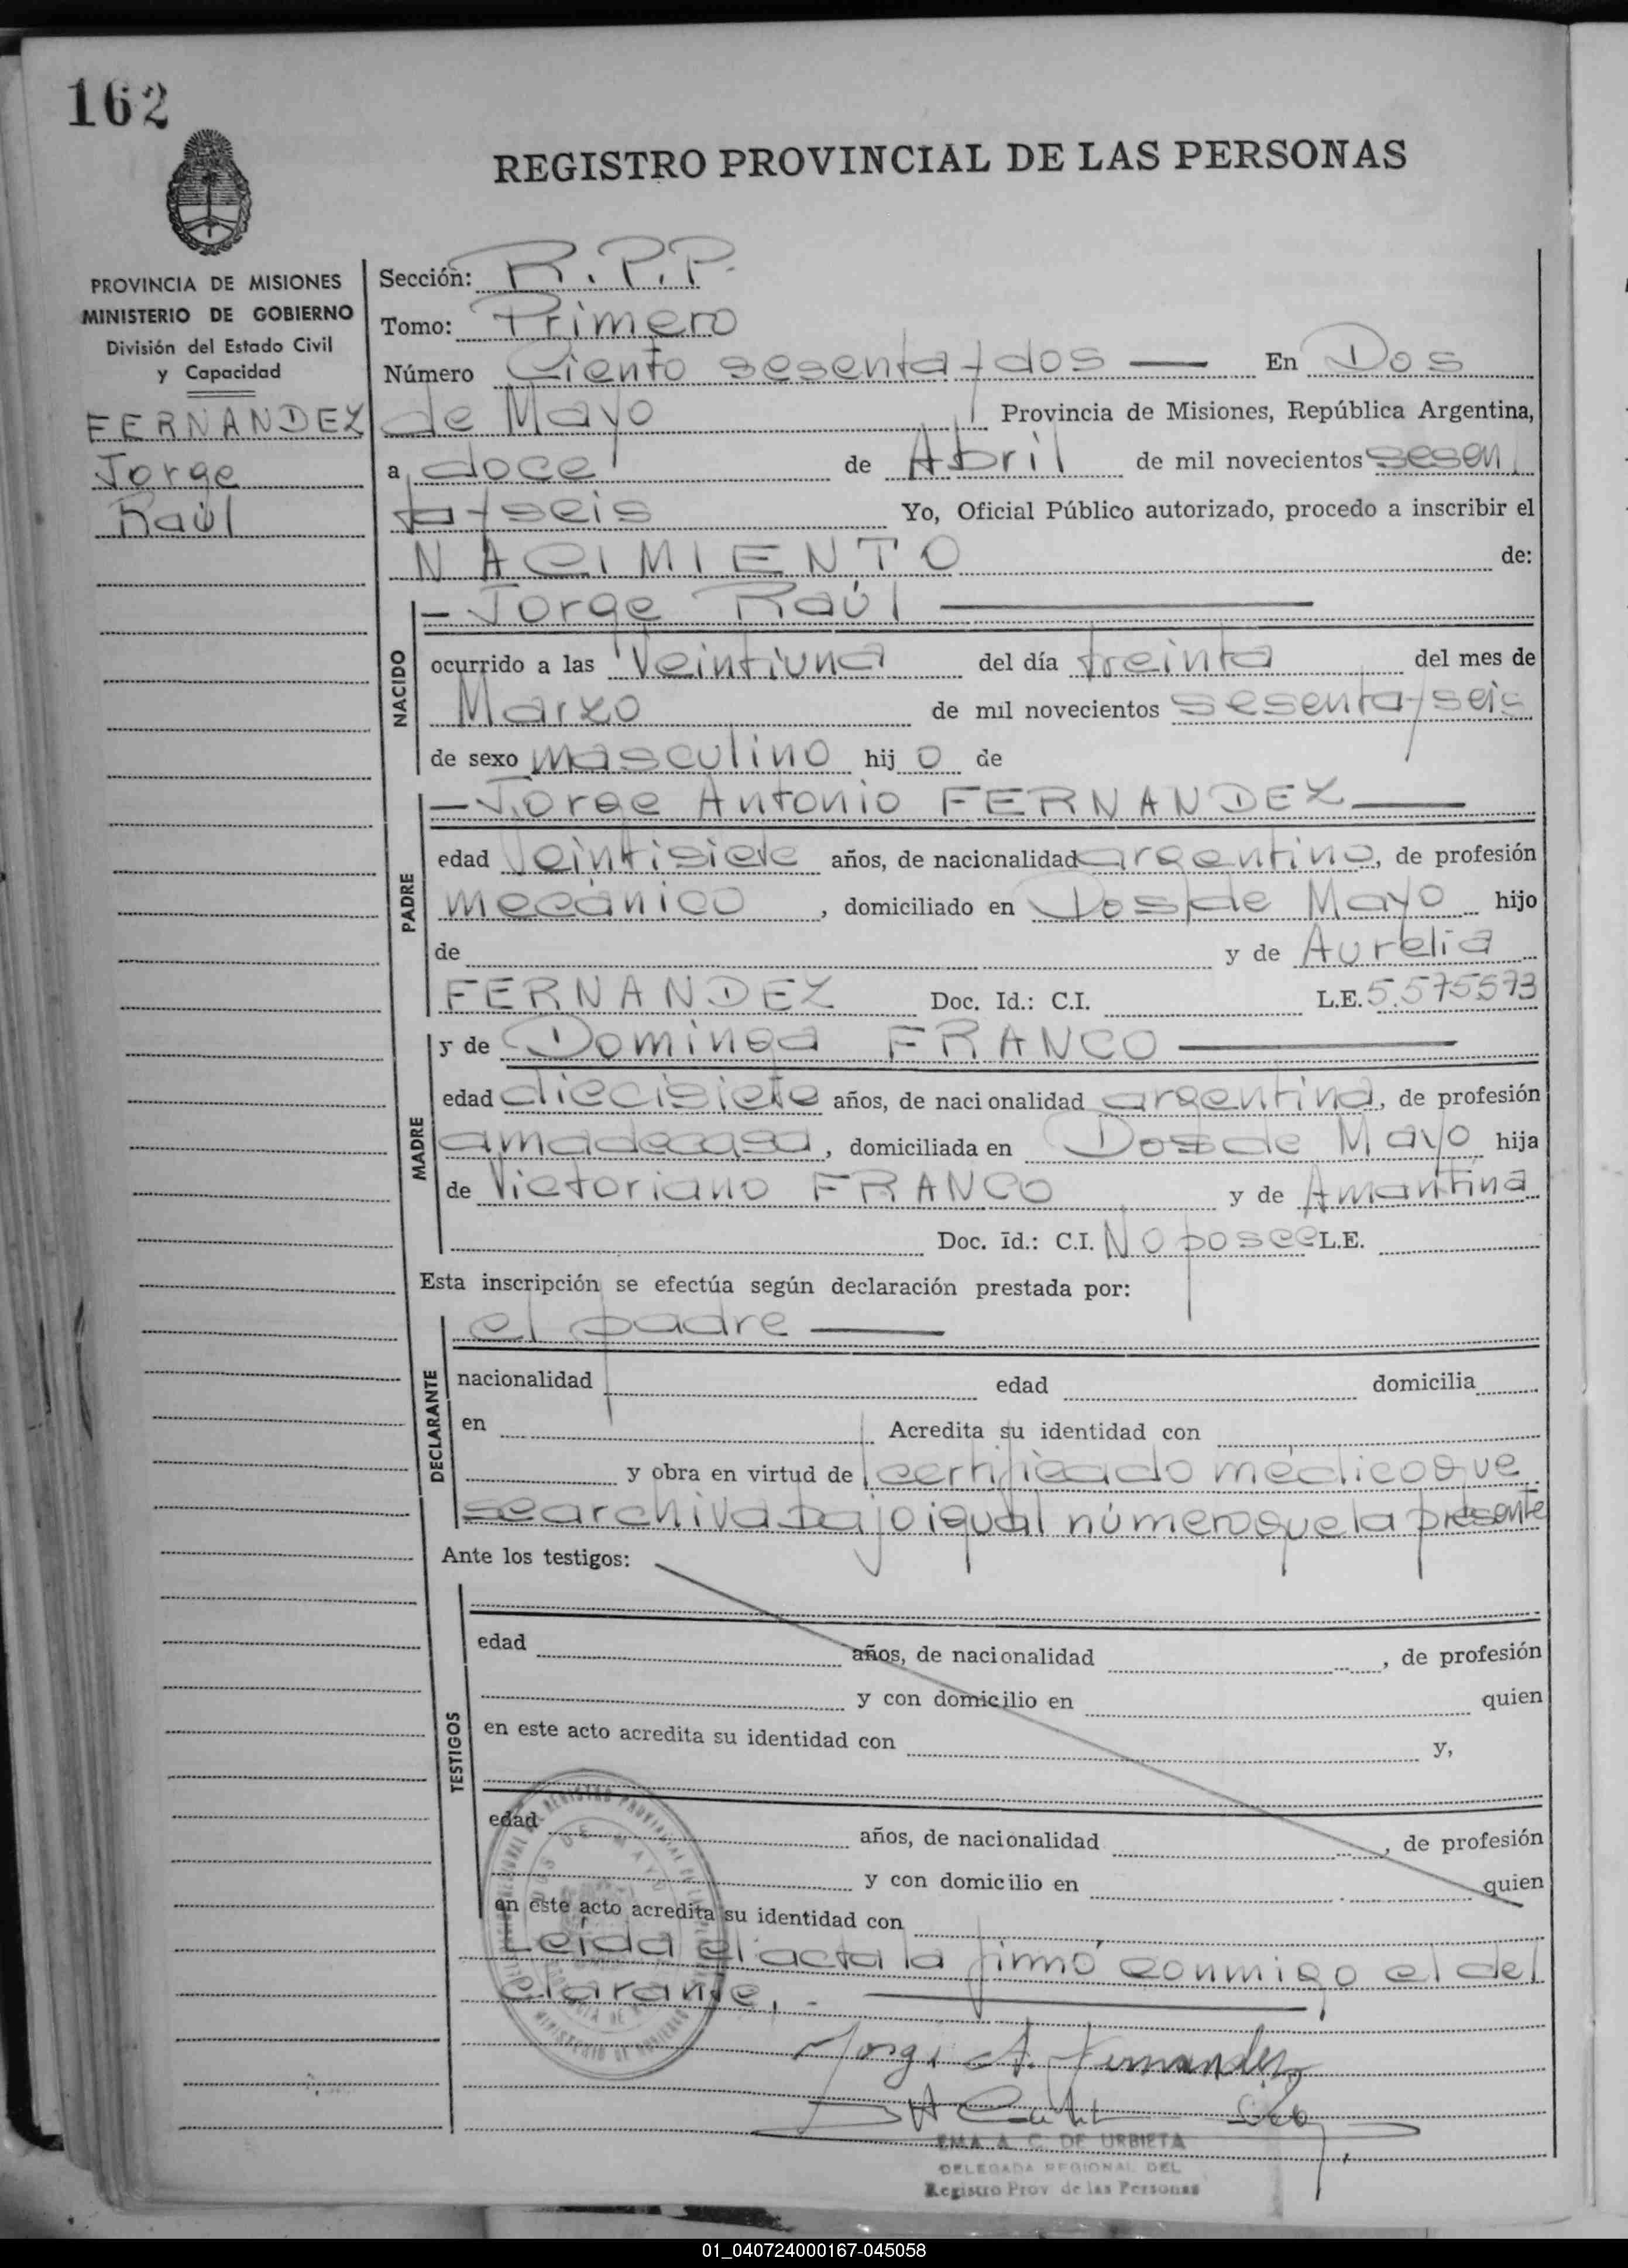 162
REGISTRO PROVINCIAL DE LAS PERSONAS
PROVINCIA DE MISIONES
MINISTERIO DE GOBIERNO
División del Estado Civil
y Capacidad
FERNANDEZ
Jorge
Raúl
Sección: R.P.P.
Tomo: Primero
Número Ciento sesenta y dos — En Dos
de Mayo Provincia de Misiones, República Argentina,
a doce de Abril de mil novecientos sesen
ta y seis Yo, Oficial Público autorizado, procedo a inscribir el
NACIMIENTO de:
NACIDO
— Jorge Raúl —
ocurrido a las veintiuna del día treinta del mes de
Marzo de mil novecientos sesenta y seis
de sexo masculino hij o de
PADRE
— Jorge Antonio FERNANDEZ —
edad veintisiete años, de nacionalidad argentino, de profesión
mecánico, domiciliado en Dos de Mayo hijo
de y de Aurelia
FERNANDEZ Doc. Id.: C.I. L.E. 5.575573
MADRE
y de Dominga FRANCO —
edad diecisiete años, de nacionalidad argentina, de profesión
ama de casa, domiciliada en Dos de Mayo hija
de Victoriano FRANCO y de Amantina
Doc. Id.: C.I. No posee L.E.
Esta inscripción se efectúa según declaración prestada por:
DECLARANTE
el padre —
nacionalidad edad domicilia
en Acredita su identidad con
y obra en virtud de certificado médico que
se archiva bajo igual número que la presente
Ante los testigos:
TESTIGOS
edad años, de nacionalidad , de profesión
y con domicilio en quien
en este acto acredita su identidad con y,
edad años, de nacionalidad , de profesión
y con domicilio en quien
en este acto acredita su identidad con
Leida el acta la firmó conmigo el de
clarante.- —
Jorge A. Fernandez
EMA A. C. DE URBIETA
DELEGADA REGIONAL DEL
Registro Prov de las Personas
01_040724000167-045058